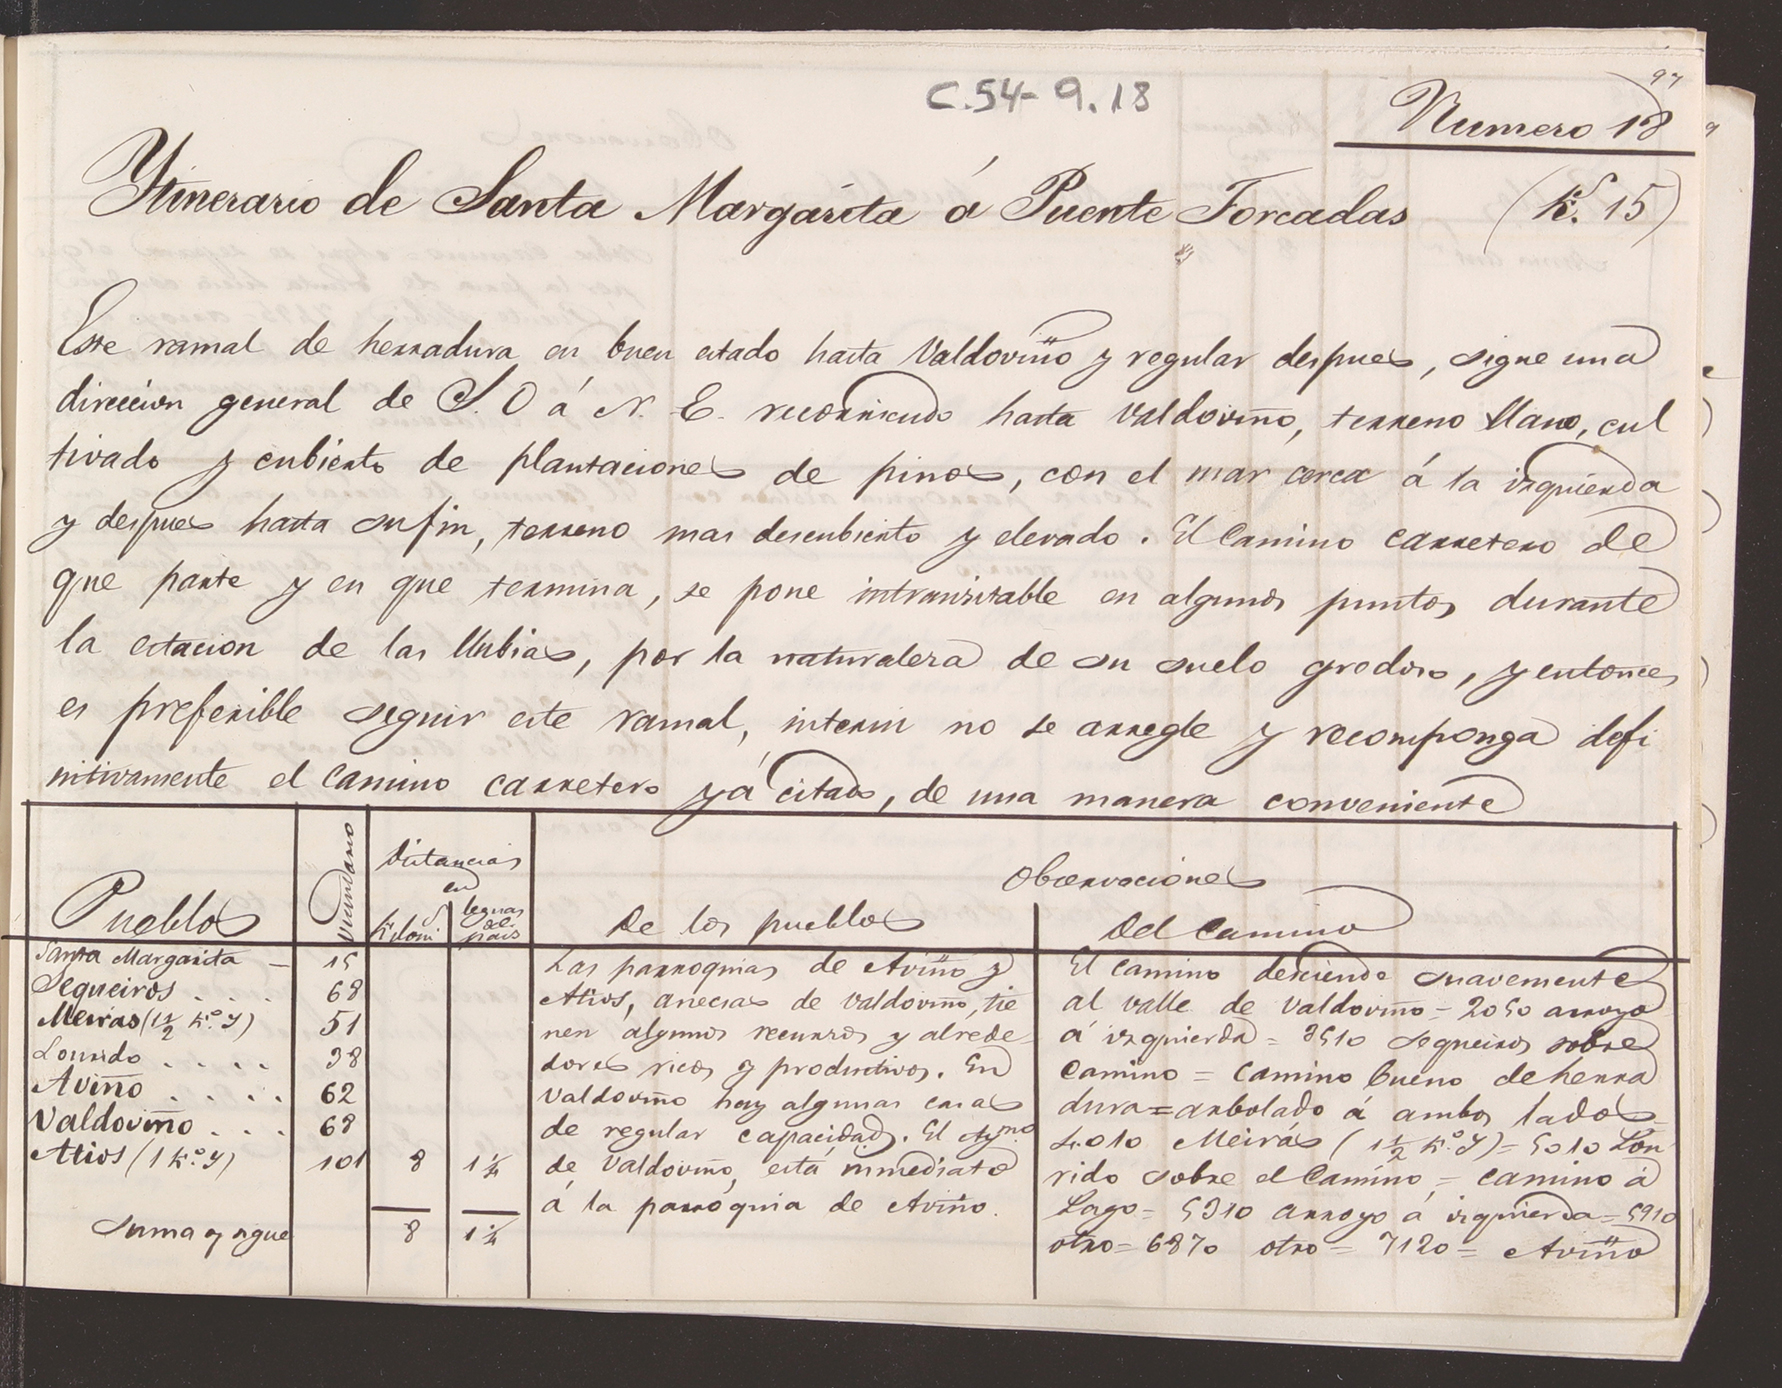 97
C.54-9.18
Numero 18
Ytinerario de Santa Margarita á Puente Forcadas (K.s 15)
Este ramal de herradura en buen estado hasta Valdoviño y regular despues, sigue una
direccion general de S.O á N.E. recorriendo hasta Valdoviño, terreno llano, cul
tivado y cubierto de plantaciones de pinos, con el mar cerca á la izquierda
y despues hasta su fin, terreno mas descubierto y elevado. El Camino carretero de
que parte y en que termina, se pone intransitable en algunos puntos durante
la estacion de las llubias, por la naturaleza de su suelo gredoso, y entonces
es preferible seguir este ramal, interin no se arregle y recomponga defi
nitivamente el Camino carretero yá citado, de una manera conveniente
Pueblos
Vecindario
Distancias
en
Kilom.s
leguas
de
pais
Observaciones
De los pueblos
Del Camino
Santa Margarita - 15
Sequeiros . . . . 68
Meiras (1 1/2 K.o Y) 51
Lourido . . . . 38
Aviño . . . . 62
Valdoviño . . . 68
Atios (1 K.o Y) 101 8 1 1/4
Suma y sigue 8 1 1/4
Las parroquias de Aviño y
Atios, anecsas de Valdoviño, tie
nen algunos recursos y alrede-
dores ricos y productivos. En
Valdoviño hay algunas casas
de regular capacidad. El Ay.mo
de Valdoviño, está inmediato
á la parróquia de Aviño.
El camino desciende suavemente
al valle de Valdoviño = 2050 arroyo
á izquierda = 3510 Sequeiros sobre
Camino = Camino bueno de herra
dura = arbolado á ambos lados =
4.010 Meirás (1 1/2 K.o Y) = 5010 Lou
rido sobre el Camino = camino á
Lago = 5310 arroyo á izquierda = 5910
otro = 6870 otro = 7120 = Aviño